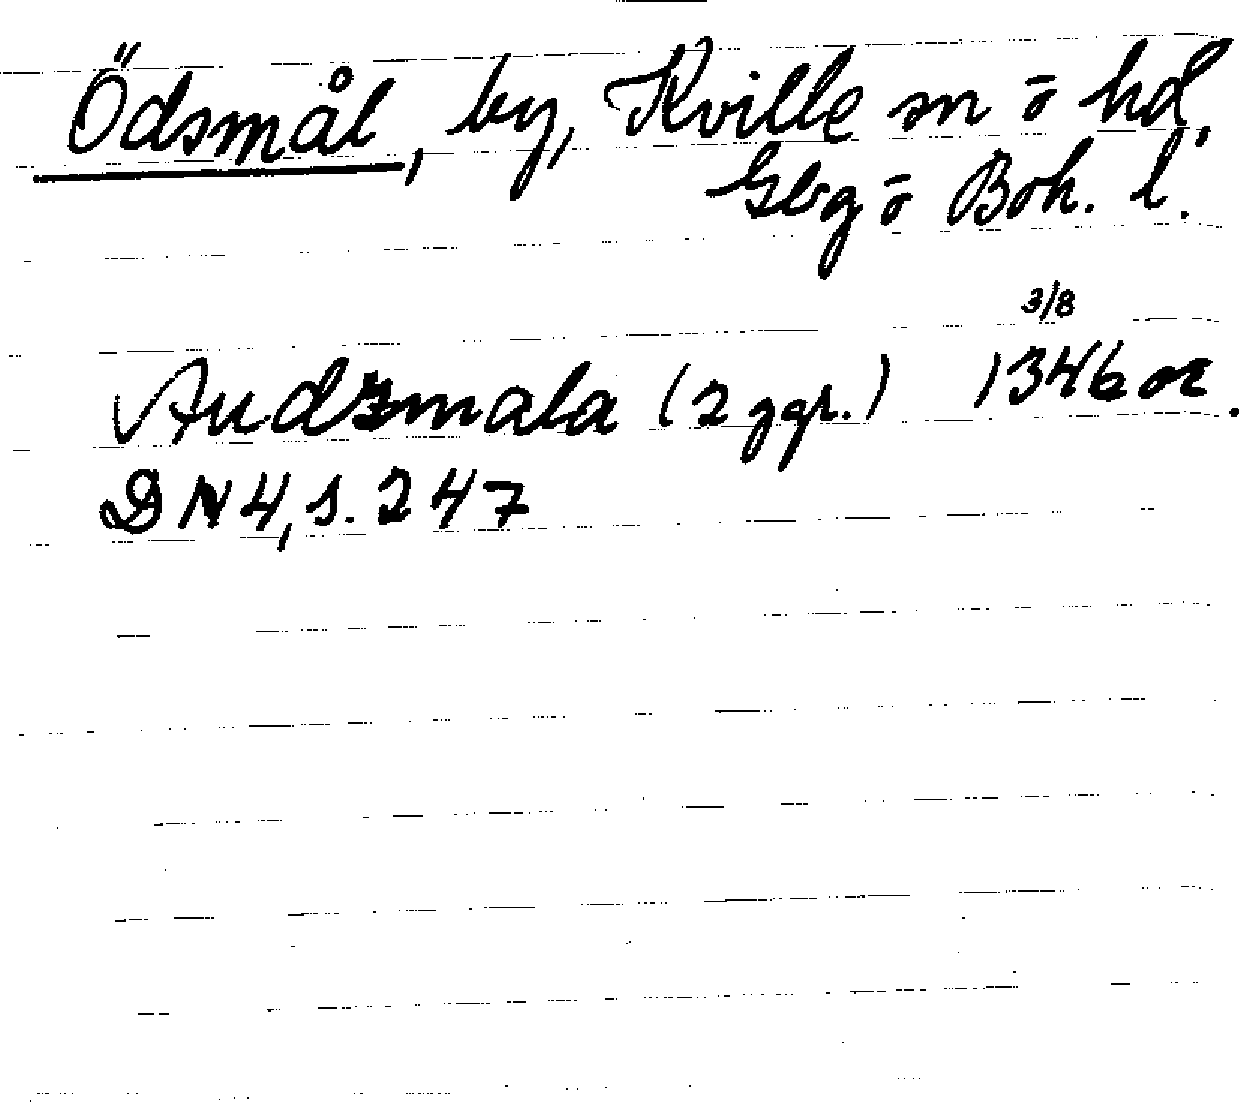 Ödsmål, by, Kville sn o hd,
Gbg o Boh. l.
3/8
Audzmala (2 ggr.) 1346 or.
DN 4, s. 247